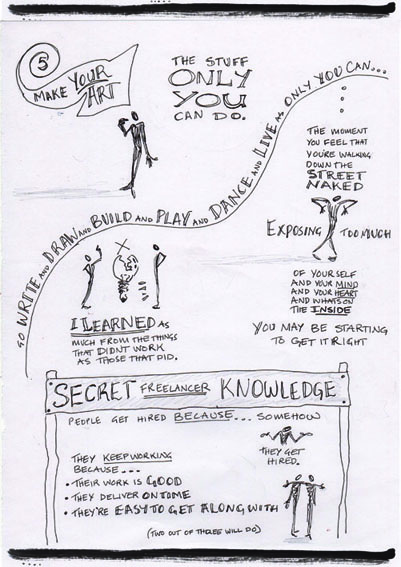 5
MAKE YOUR
ART
THE STUFF
ONLY
YOU
CAN DO.
SO WRITE AND DRAW AND BUILD AND PLAY AND DANCE AND LIVE AS ONLY YOU CAN...
THE MOMENT
YOU FEEL THAT
YOU'RE WALKING
DOWN THE
STREET
NAKED
EXPOSING TOO MUCH
OF YOURSELF
AND YOUR MIND
AND YOUR HEART
AND WHAT'S ON
THE INSIDE
YOU MAY BE STARTING
TO GET IT RIGHT
I LEARNED AS
MUCH FROM THE THINGS
THAT DIDNT WORK
AS THOSE THAT DID.
SECRET FREELANCER KNOWLEDGE
PEOPLE GET HIRED BECAUSE... SOMEHOW
THEY GET
HIRED.
THEY KEEP WORKING
BECAUSE...
• THEIR WORK IS GOOD
• THEY DELIVER ON TIME
• THEY'RE EASY TO GET ALONG WITH
(TWO OUT OF THREE WILL DO)